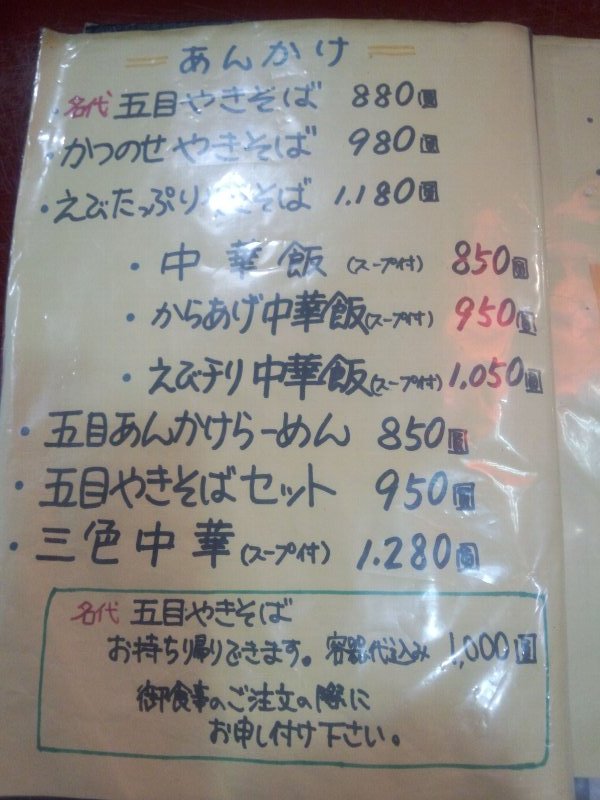 = あんかけ =
・名代 五目やきそば 880圓
・かつのせやきそば 980圓
・えびたっぷりやきそば 1.180圓
・中華飯(スープ付) 850圓
・からあげ中華飯(スープ付) 950圓
・えびチリ中華飯(スープ付) 1.050圓
・五目あんかけらーめん 850圓
・五目やきそばセット 950圓
・三色中華(スープ付) 1.280圓
名代 五目やきそば
お持ち帰りできます。容器代込み 1,000圓
御食事のご注文の際に
お申し付け下さい。